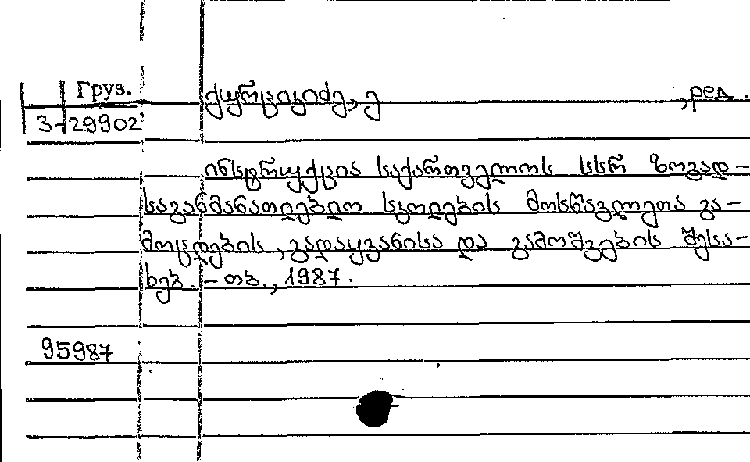 Груз.
ქურციკიძე, ე , ред.
3-29902
ინსტრუქცია საქართველოს სსრ ზოგად-
საგანმანათლებლო სკოლების მოსწავლეთა გა-
მოცდების, გადაყვანისა და გამოშვების შესა-
ხებ. - თბ., 1987.
95987